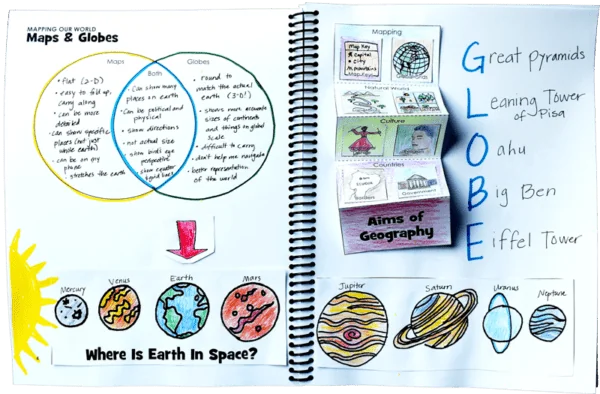 MAPPING OUR WORLD
Maps & Globes
Maps
Both
Globes
• flat (2-D)
• easy to fold up, carry along
• can be more detailed
• can show specific places (not just whole earth)
• can be on my phone
• stretches the earth
• Can show many places on earth
• Can be political and physical
• show directions
• not actual size
• show bird's eye perspective
• show equator
• round to match the actual earth (3-D!)
• shows more accurate sizes of continents and things on global scale
• difficult to carry
• don't help me navigate
• better representation of the world
Mercury
Venus
Earth
Mars
Where Is Earth In Space?
Mapping
Map Key
capital
city
mountains
Natural World
Culture
Countries
Government
Aims of
Geography
Great pyramids
Leaning Tower
of Pisa
Oahu
Big Ben
Eiffel Tower
Jupiter
Saturn
Uranus
Neptune